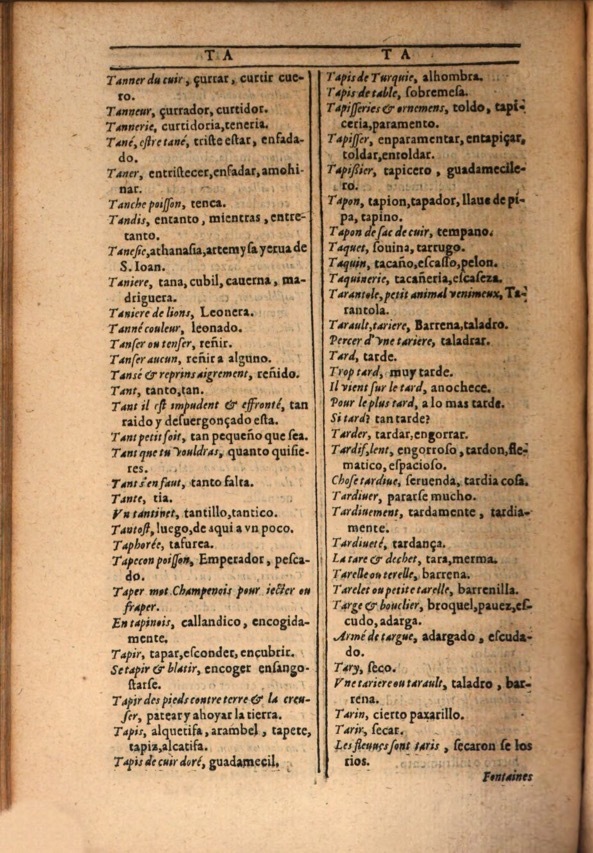 TA
Tanner du cuir, çurrar, curtir cue-
ro.
Tanneur, çurrador, curtidor.
Tannerie, curtidoria, teneria.
Tané, estre tané, triste estar, enfada-
do.
Taner, entristecer, enfadar, amohi-
nar.
Tanche poisson, tenca.
Tandis, entanto, mientras, entre-
tanto.
Tanesie, athanasia, artemysa yerua de
S. Ioan.
Taniere, tana, cubil, cauerna, ma-
driguera.
Taniere de lions, Leonera.
Tanné couleur, leonado.
Tanser ou tenser, reñir.
Tanser aucun, reñir a alguno.
Tansé & reprins aigrement, reñido.
Tant, tanto, tan.
Tant il est impudent & effronté, tan
raido y desuergonçado esta.
Tant petit soit, tan pequeño que sea.
Tant que tu vouldras, quanto quisie-
res.
Tant s'en faut, tanto falta.
Tante, tia.
Vn tantinet, tantillo, tantico.
Tantost, luego, de aqui a vn poco.
Taphorée, tafurea.
Tapecon poisson, Emperador, pesca-
do.
Taper mot Champenois pour iecter ou
fraper.
En tapinois, callandico, encogida-
mente.
Tapir, tapar, esconder, encubrir.
Se tapir & blatir, encoger ensango-
starse.
Tapir des pieds contre terre & la creu-
ser, patear y ahoyar la tierra.
Tapis, alquetifa, arambel, tapete,
tapiz, alcatifa.
Tapis de cuir doré, guadamecil.
TA
Tapis de Turquie, alhombra.
Tapis de table, sobremesa.
Tapisseries & ornemens, toldo, tapi-
ceria, paramento.
Tapisser, enparamentar, entapiçar,
toldar, entoldar.
Tapissier, tapicero, guadamecile-
ro.
Tapon, tapion, tapador, llaue de pi-
pa, tapino.
Tapon de sac de cuir, tempano.
Taquet, souina, tarrugo.
Taquin, tacaño, escasso, pelon.
Taquinerie, tacañeria, escaseza.
Tarantole, petit animal venimeux, Ta-
rantola.
Tarault, tariere, Barrena, taladro.
Percer d'vne tariere, taladrar.
Tard, tarde.
Trop tard, muy tarde.
Il vient sur le tard, anochece.
Pour le plus tard, a lo mas tarde.
Si tard? tan tarde?
Tarder, tardar, engorrar.
Tardif, lent, engorroso, tardon, fle-
matico, espacioso.
Chose tardiue, seruenda, tardia cosa.
Tardiuer, pararse mucho.
Tardiuement, tardamente, tardia-
mente.
Tardiueté, tardança.
La tare & dechet, tara, merma.
Tarelle ou terelle, barrena.
Tarelet ou petite tarelle, barrenilla.
Targe & bouclier, broquel, pauez, es-
cudo, adarga.
Armé de targue, adargado, escuda-
do.
Tary, seco.
Vne tariere ou tarault, taladro, bar-
rena.
Tarin, cierto paxarillo.
Tarir, secar.
Les fleuues sont taris, secaron se los
rios.
Fontaines